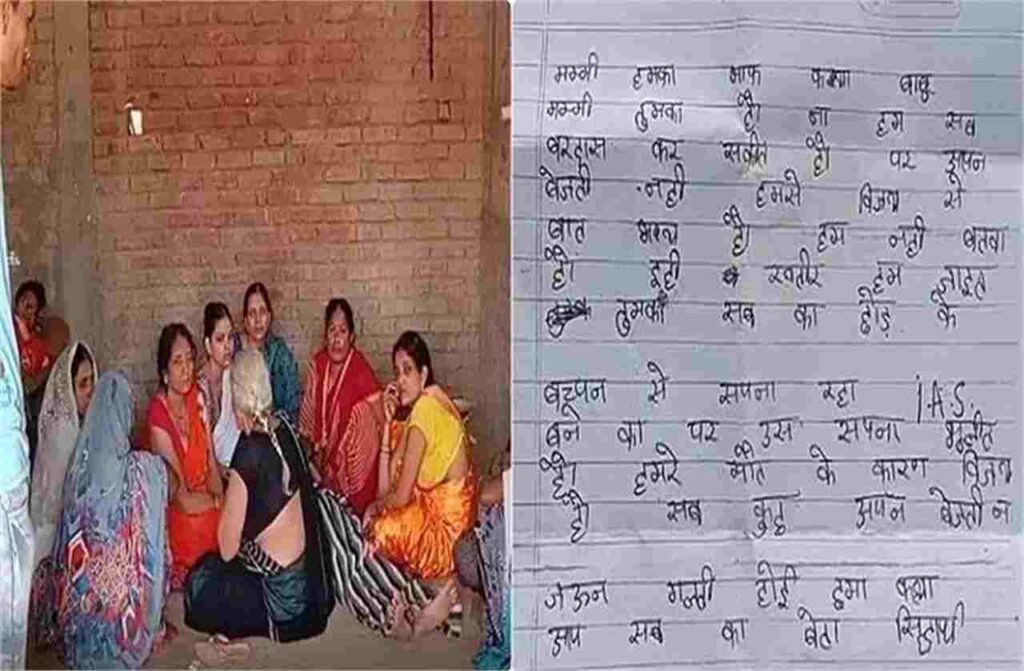 मम्मी हमका माफ करना बाबू
मम्मी तुमका है। ना हम सब
बरदास कर सकीत है। पर अपन
बेजती नही हमसे विजय से
बात भय है। हम नही बतवा
है। इही खातीर हम जाइत
तुमका सब का छोड़ के
बचपन से सपना रहा I.A.S.
बने का पर उस सपना
है। हमरे मौत के कारण विजय
है। सब कुछ अपन बेजती न
जऊन गलती होई हमा
आप सब का बेटा सिद्धार्थ